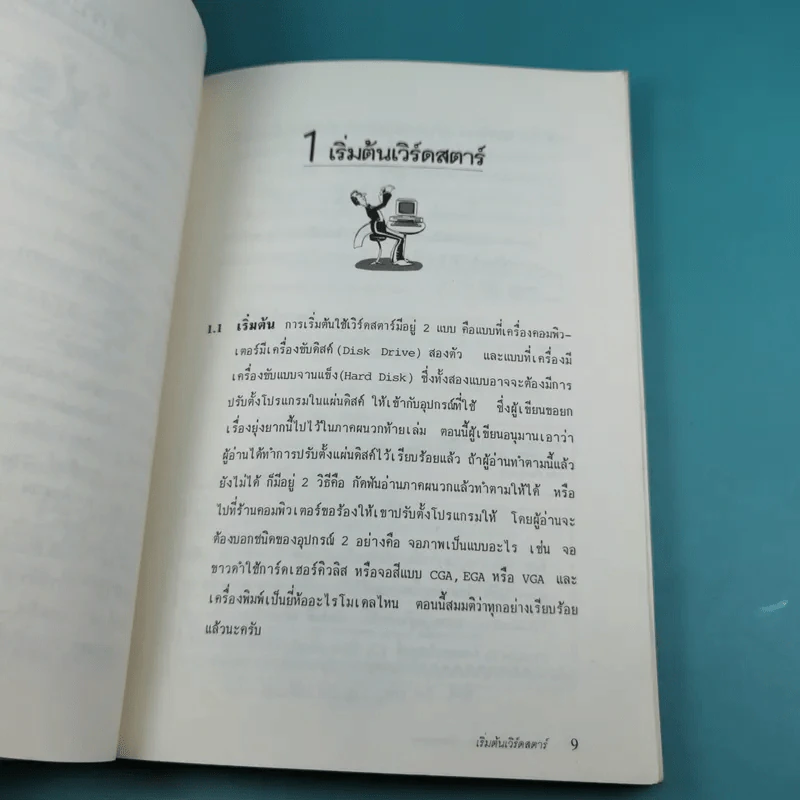 1 เริ่มต้นเวิร์ดสตาร์
1.1 เริ่มต้น การเริ่มต้นใช้เวิร์ดสตาร์มีอยู่ 2 แบบ คือแบบที่เครื่องคอมพิว-
เตอร์มีเครื่องขับดิสค์ (Disk Drive) สองตัว และแบบที่เครื่องมี
เครื่องขับแบบจานแข็ง(Hard Disk) ซึ่งทั้งสองแบบอาจจะต้องมีการ
ปรับตั้งโปรแกรมในแผ่นดิสค์ ให้เข้ากับอุปกรณ์ที่ใช้ ซึ่งผู้เขียนขอยก
เรื่องยุ่งยากนี้ไปไว้ในภาคผนวกท้ายเล่ม ตอนนี้ผู้เขียนอนุมานเอาว่า
ผู้อ่านได้ทำการปรับตั้งแผ่นดิสค์ไว้เรียบร้อยแล้ว ถ้าผู้อ่านทำตามนี้แล้ว
ยังไม่ได้ ก็มีอยู่ 2 วิธีคือ กัดฟันอ่านภาคผนวกแล้วทำตามให้ได้ หรือ
ไปที่ร้านคอมพิวเตอร์ขอร้องให้เขาปรับตั้งโปรแกรมให้ โดยผู้อ่านจะ
ต้องบอกชนิดของอุปกรณ์ 2 อย่างคือ จอภาพเป็นแบบอะไร เช่น จอ
ขาวดำใช้การ์ดเฮอร์คิวลิส หรือจอสีแบบ CGA, EGA หรือ VGA และ
เครื่องพิมพ์เป็นยี่ห้ออะไรโมเดลไหน ตอนนี้สมมติว่าทุกอย่างเรียบร้อย
แล้วนะครับ
เริ่มต้นเวิร์ดสตาร์ 9